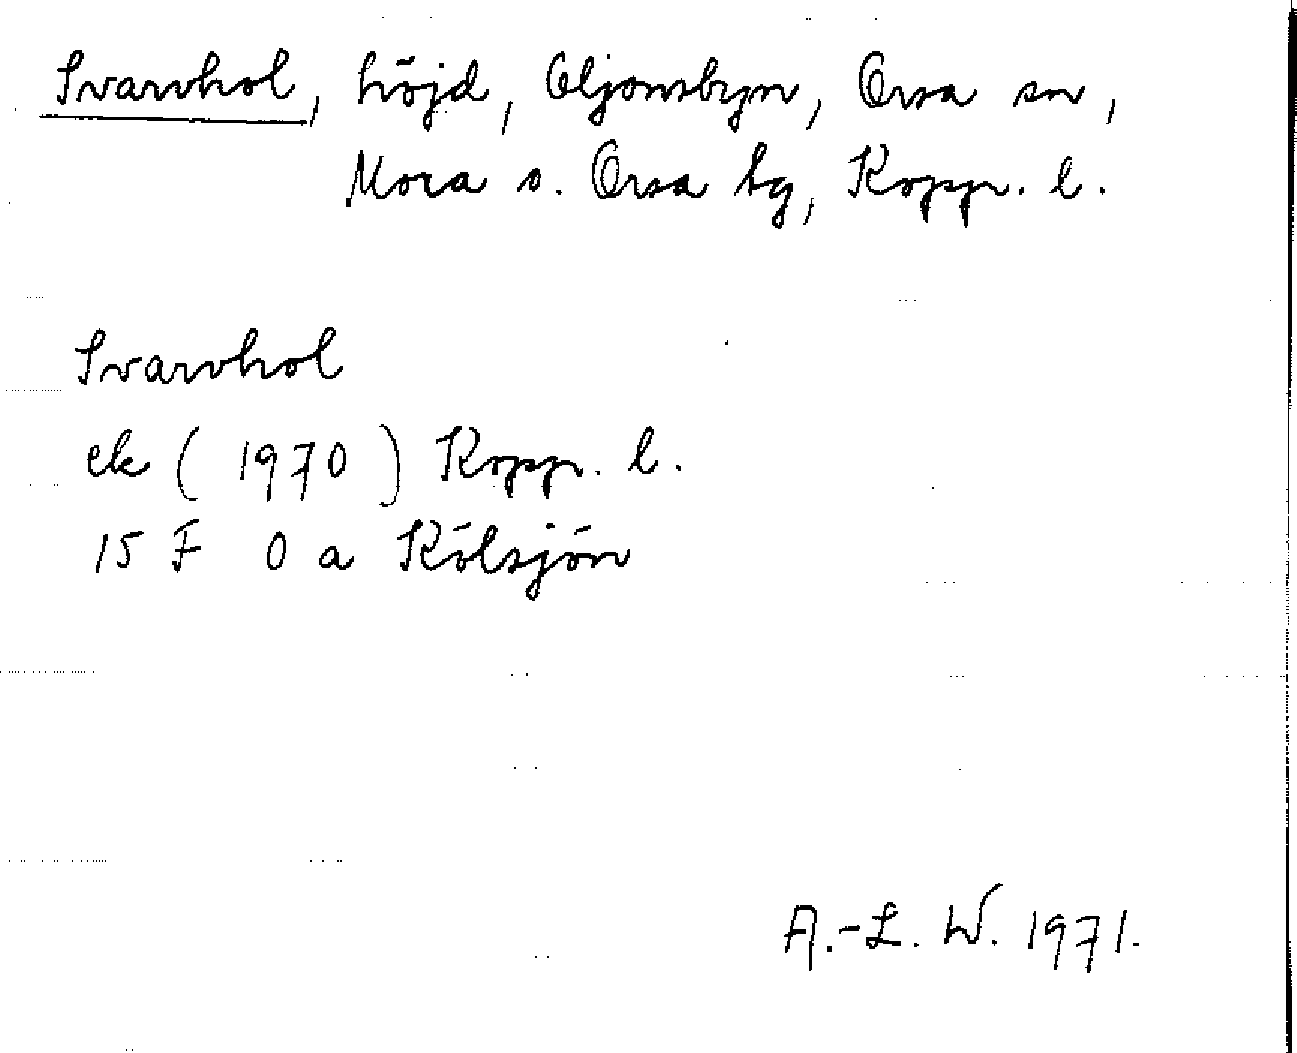 Svarvhol, höjd, Oljonsbyn, Orsa sn,
Mora o. Orsa tg, Kopp. l.
Svarvhol
ek (1970) Kopp. l.
15 F 0 a Kölsjön
A.-L. W. 1971.